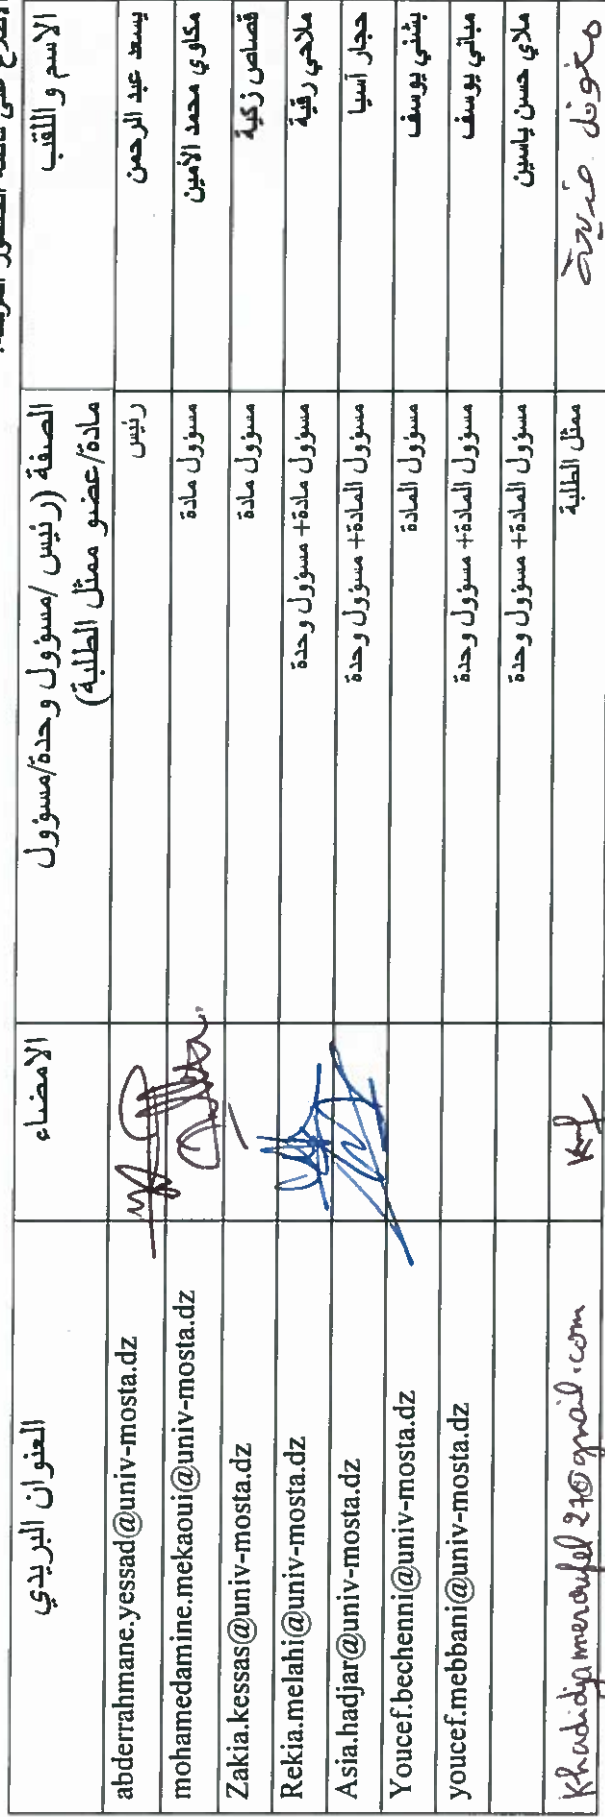 الاسم و اللقب
الصفة (رئيس /مسؤول وحدة/مسؤول
مادة/عضو ممثل الطلبة)
الامضاء
العنوان البريدي
يسعد عبد الرحمن
رئيس
abderrahmane.yessad@univ-mosta.dz
مكاوي محمد الأمين
مسؤول مادة
mohamedamine.mekaoui@univ-mosta.dz
قصاص زكية
مسؤول مادة
Zakia.kessas@univ-mosta.dz
ملاحي رقية
مسؤول مادة+ مسؤول وحدة
Rekia.melahi@univ-mosta.dz
حجار آسيا
مسؤول المادة+ مسؤول وحدة
Asia.hadjar@univ-mosta.dz
بشني يوسف
مسؤول المادة
Youcef.bechenni@univ-mosta.dz
مباني يوسف
مسؤول المادة+ مسؤول وحدة
youcef.mebbani@univ-mosta.dz
ملاي حسن ياسين
مسؤول المادة+ مسؤول وحدة
ممثل الطلبة
Khadidjameroufel27@gmail.com